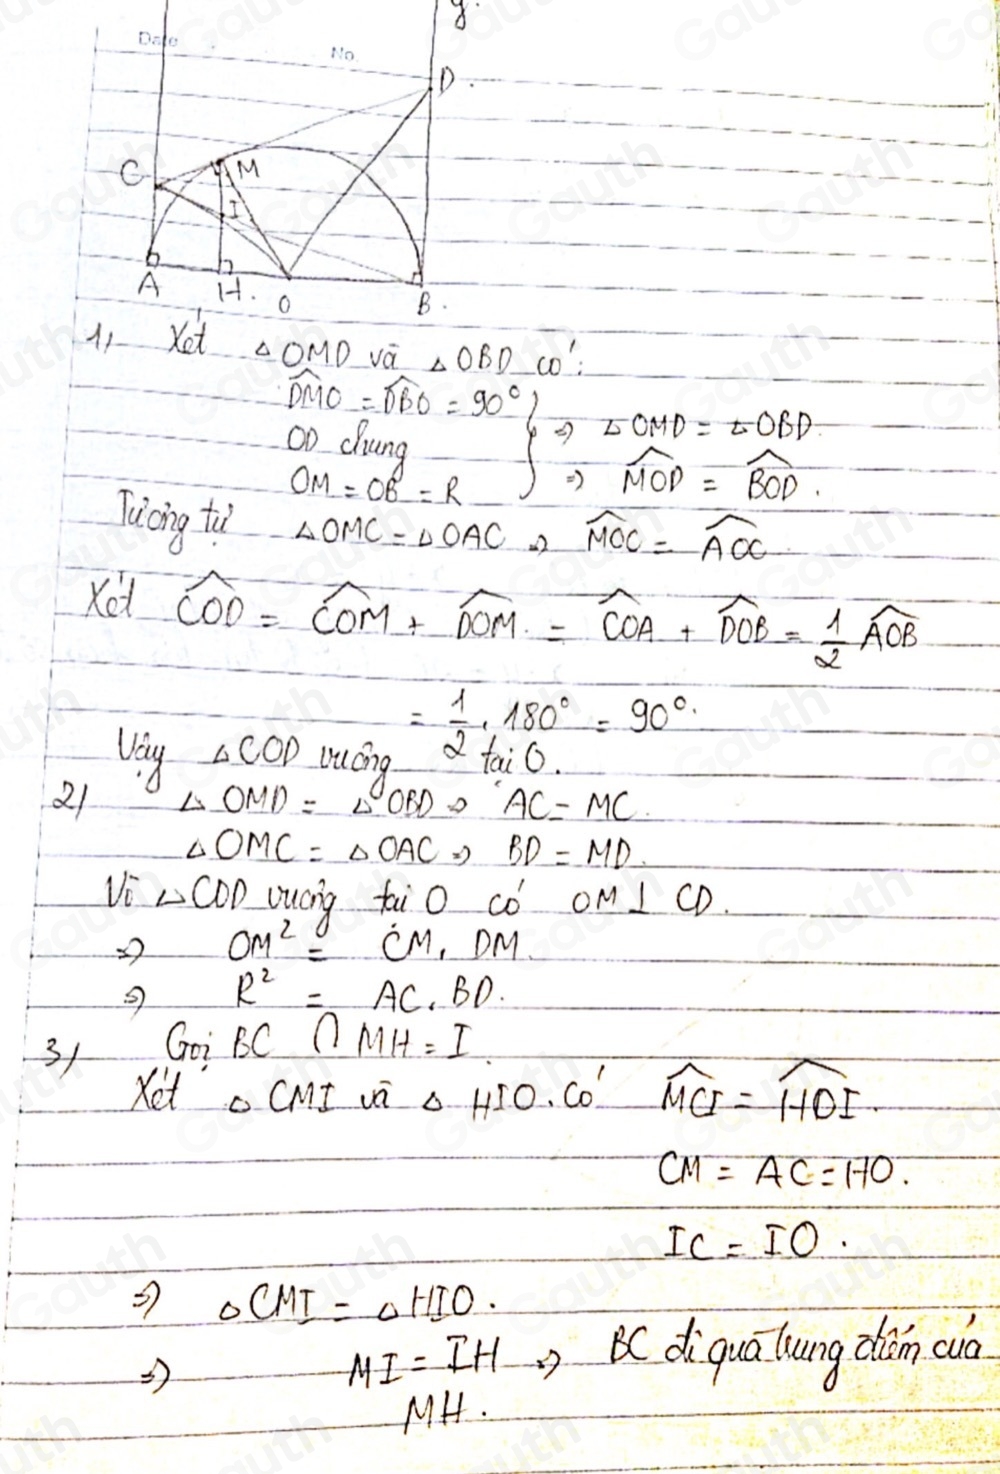 y.
Date
No.
D.
C
M
I
A
H.
O
B.
1, Xét △OMD và △OBD có:
DMO = DBO = 90°
OD chung
OM = OB = R
⇒ △OMD = △OBD.
⇒ MOD = BOD.
Tương tự △OMC = △OAC ⇒ MOC = AOC
Xét COD = COM + DOM. = COA + DOB = 1/2 AOB
= 1/2 . 180° = 90°.
Vậy △COD vuông tại O.
2/ △OMD = △OBD ⇒ AC = MC.
△OMC = △OAC ⇒ BD = MD.
Vì △COD vuông tại O có OM ⊥ CD.
⇒ OM² = CM. DM
⇒ R² = AC. BD.
3/ Gọi BC ∩ MH = I.
Xét △CMI và △HIO. có MCI = HOI.
CM = AC = HO.
IC = IO.
⇒ △CMI = △HIO.
⇒ MI = IH ⇒ BC đi qua trung điểm của
MH.
Gauth